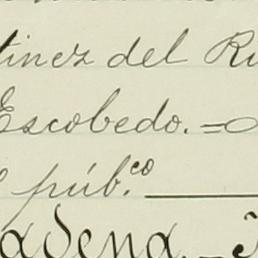 tinez del Ru
Escobedo. =
púb.co
adena. =